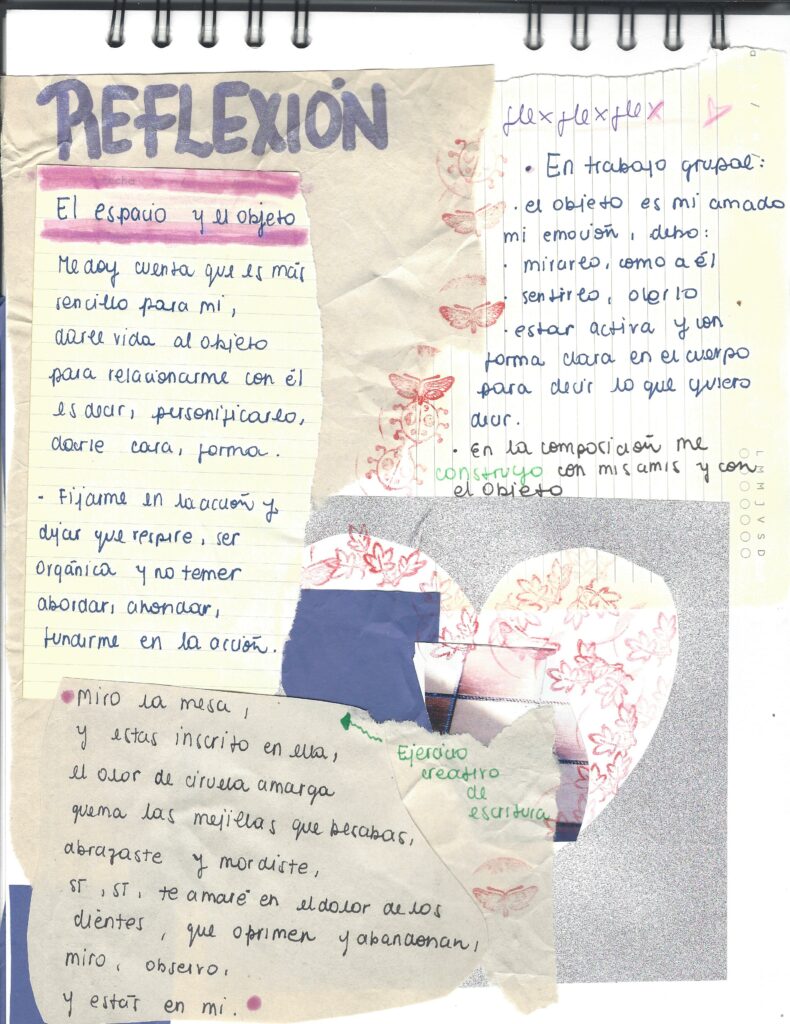 REFLEXIÓN
El espacio y el objeto
Me doy cuenta que es más
sencillo para mi,
darle vida al objeto
para relacionarme con él
es decir, personificarlo,
darle cara, forma.
- Fijarme en la acción y
dejar que respire, ser
orgánica y no temer
abordar, ahondar,
fundirme en la acción.
• En trabajo grupal:
· el objeto es mi amado
mi emoción, debo:
· mirarlo, como a él
· sentirlo, olerlo
· estar activa y con
forma clara en el cuerpo
para decir lo que quiero
decir.
· En la composición me
construyo con mis amis y con
el objeto
L M M J V S D
• Miro la mesa,
y estás inscrito en ella,
el olor de ciruela amarga
quema las mejillas que besabas,
abrazaste y mordiste,
sí, sí, te amaré en el dolor de los
dientes, que oprimen y abandonan,
miro, observo,
y estás en mi. •
Ejercicio
creativo
de
escritura